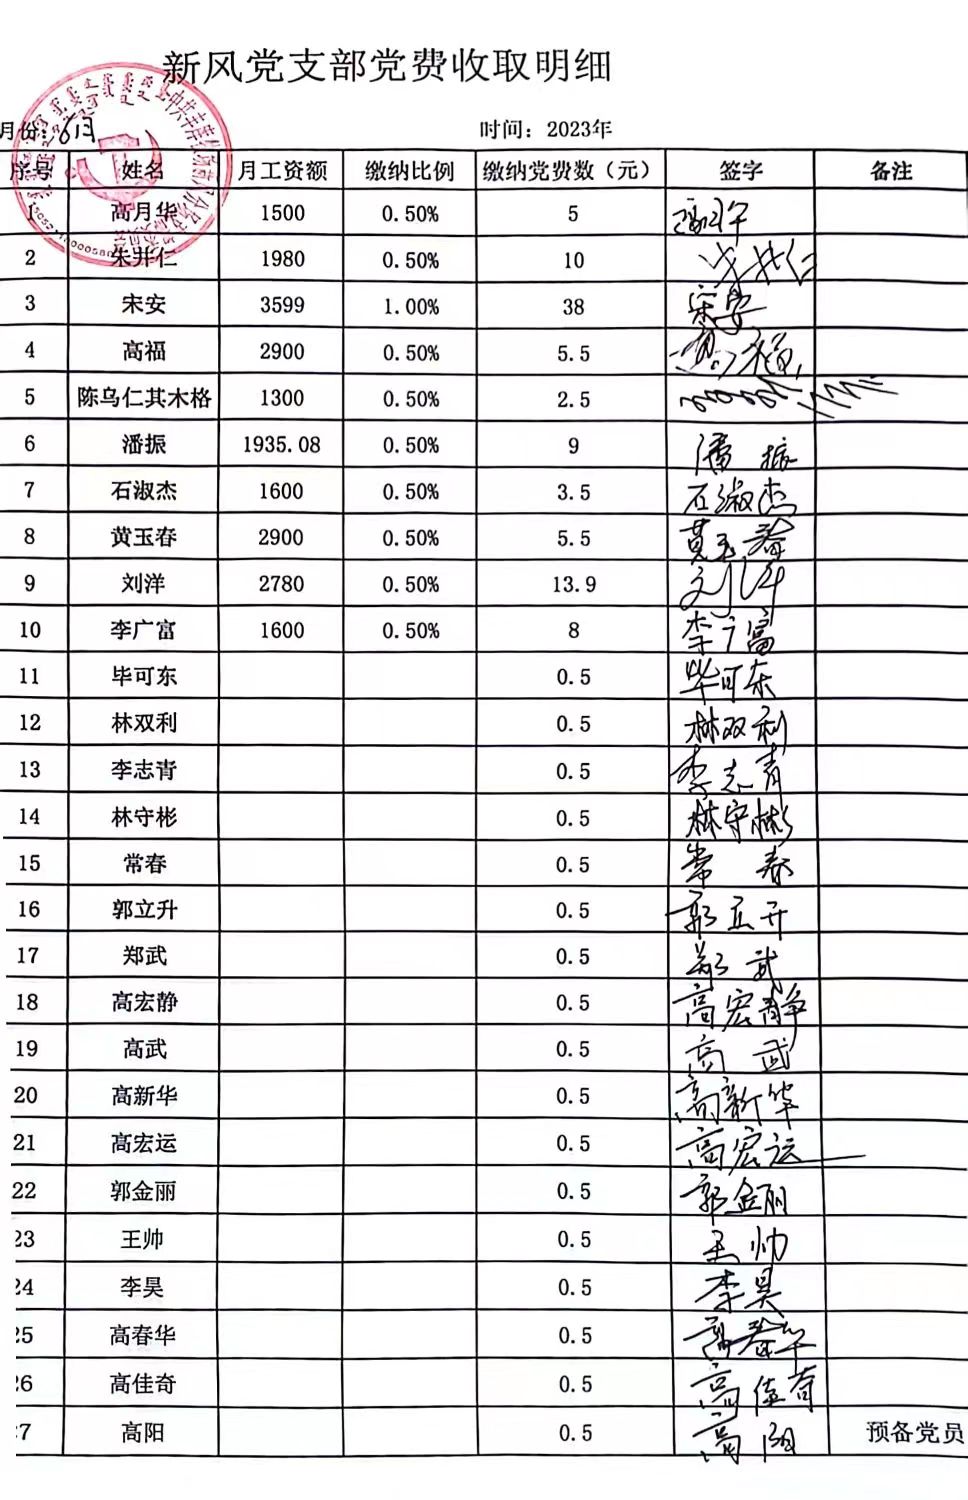 新风党支部党费收取明细
月份：6月 时间：2023年
序号 姓名 月工资额 缴纳比例 缴纳党费数（元） 签字 备注
1 高月华 1500 0.50% 5
2 朱井仁 1980 0.50% 10
3 宋安 3599 1.00% 38 宋安
4 高福 2900 0.50% 5.5 高福
5 陈乌仁其木格 1300 0.50% 2.5
6 潘振 1935.08 0.50% 9 潘振
7 石淑杰 1600 0.50% 3.5 石淑杰
8 黄玉春 2900 0.50% 5.5 黄玉春
9 刘洋 2780 0.50% 13.9 刘洋
10 李广富 1600 0.50% 8 李广富
11 毕可东 0.5 毕可东
12 林双利 0.5 林双利
13 李志青 0.5 李志青
14 林守彬 0.5 林守彬
15 常春 0.5 常春
16 郭立升 0.5 郭立升
17 郑武 0.5 郑武
18 高宏静 0.5 高宏静
19 高武 0.5 高武
20 高新华 0.5 高新华
21 高宏运 0.5 高宏运
22 郭金丽 0.5 郭金丽
23 王帅 0.5 王帅
24 李昊 0.5 李昊
25 高春华 0.5 高春华
26 高佳奇 0.5 高佳奇
27 高阳 0.5 高阳 预备党员